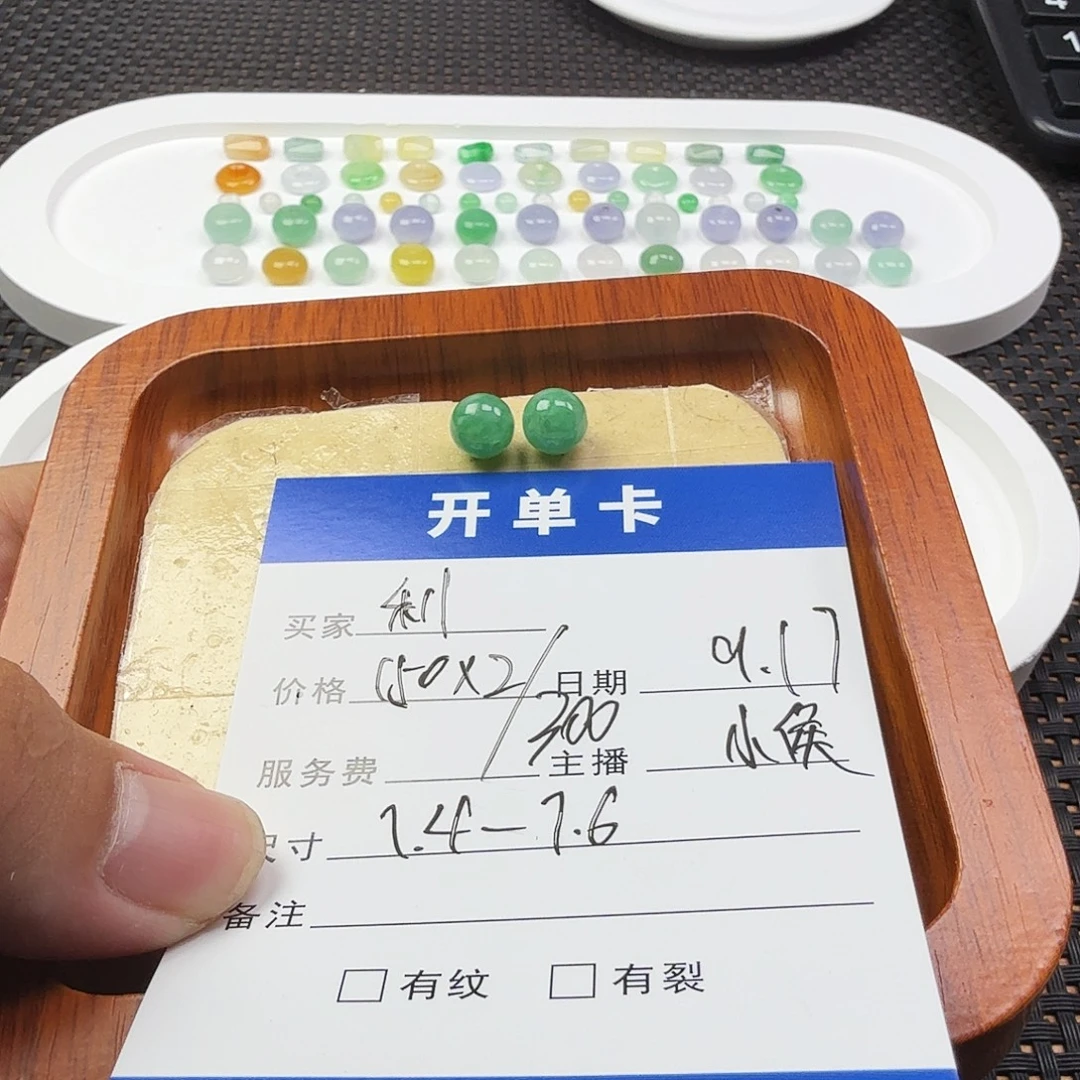 开单卡
买家 利
价格 150×2/300 日期 9.17
服务费 主播 小侯
尺寸 7.4-7.6
备注
□ 有纹 □ 有裂